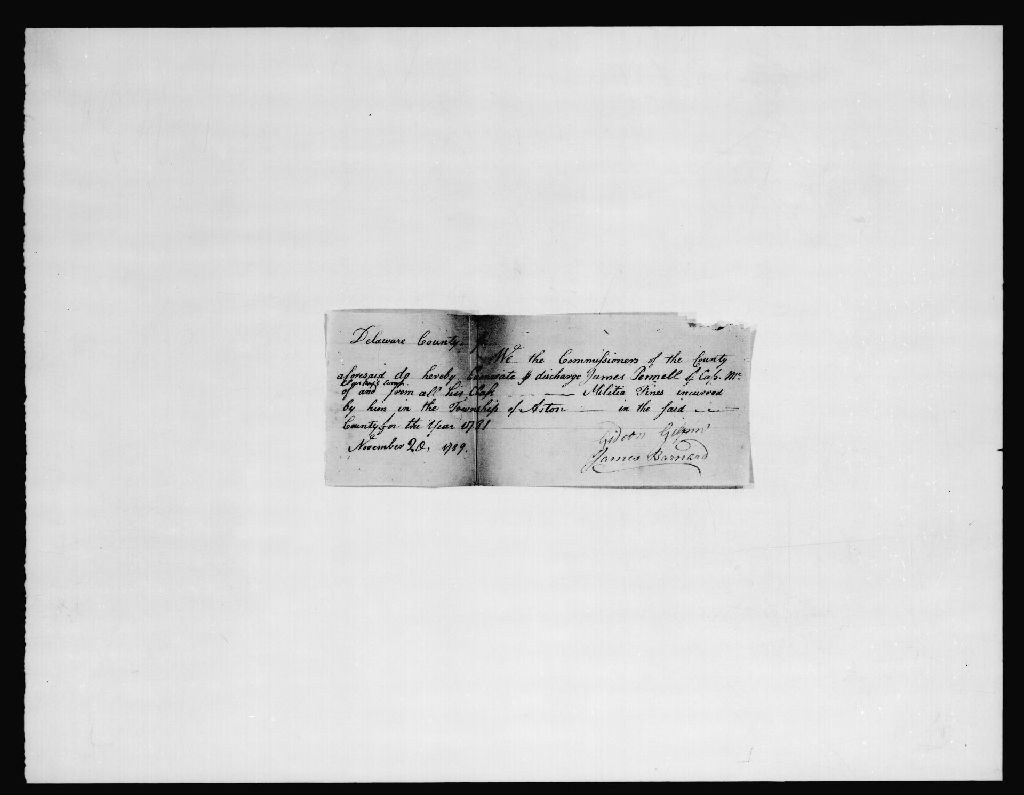 Delaware County ss.
We the Commissioners of the County
aforesaid do hereby Exonerate & discharge James Pennell of Cap. Mc
Comp.
of and from all his Class Militia Fines incurred
by him in the Township of Aston in the said
County for the Year 1781
November 28, 1789.
Gideon
James Barnard